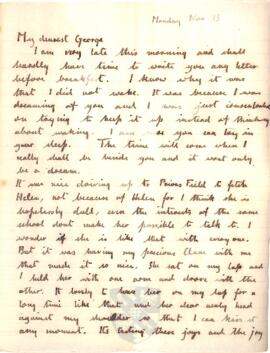 Monday Nov 13
My dearest George
I am very late this morning and shall
hardly have time to write you any letter
before breakfast. I know why it was
that I did not wake. It was because I was
dreaming of you and I was just
on trying to keep it up instead of thinking
about waking. I am you can lay in
your sleep. The time will come when I
really shall be beside you and it wont only
be a dream.
It was nice driving up to Priors Field to fetch
Helen, not because of Helen for I think she is
hopelessly dull, even the interests of the same
school dont make her possible to talk to. I
wonder if she is like that with everyone.
But it was having my precious Clare with me
that made it so nice. She sat on my lap and
I held her with one arm and drove with the
other. It lovely to have her on my lap for a
long time like that and her dear head
against my shoulder so that I can kiss it
any moment. Its these joys and the joy